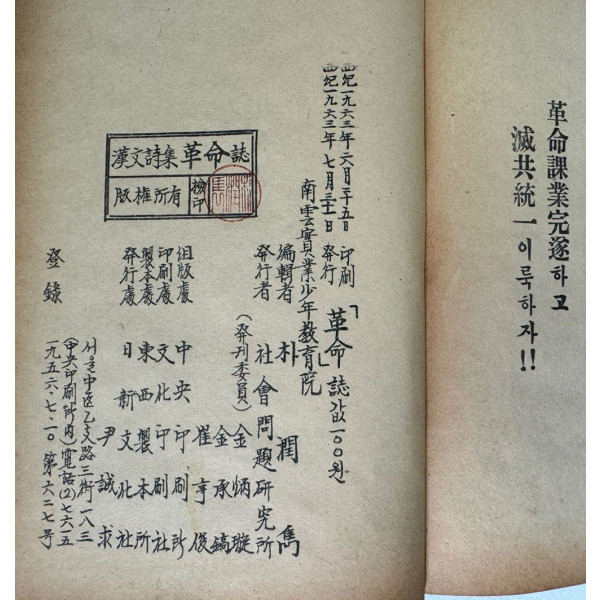 革命課業完遂하고
滅共統一이룩하자!!
西紀一九六三年 六月二十五日 印刷
西紀一九六三年 七月三十一日 發行
「革命誌」값一〇〇원
南雲實業少年敎育院
編輯者 朴潤雋
發行者 社會問題硏究所
(發刊委員) 金炳璇
金承鎬
崔亨俊
組版處 中央印刷所
印刷處 文化印刷社
製本處 東西製本所
發行處 日新文化社
尹誠求
서울中區乙支路三街一八三
(中央印刷所內) 電話(2)七六一五
登錄 一九五六·七·一〇 第六二七号
漢文詩集 革命誌
版權所有
檢印